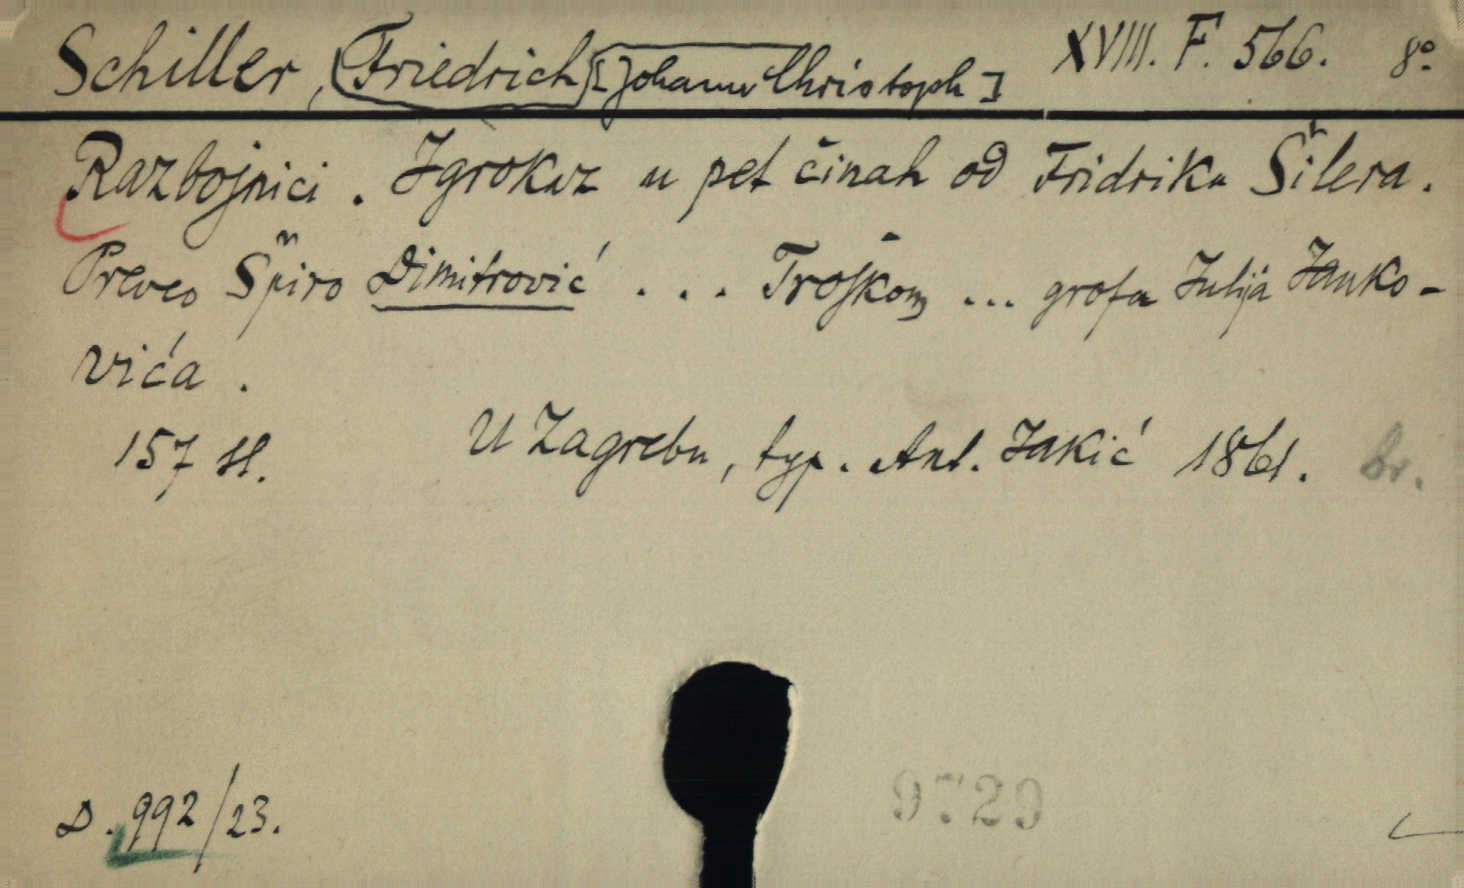 Schiller, (Friedrich) [Johann Christoph] XVIII. F. 566. 8º
Razbojnici. Igrokaz u pet činah od Fridrika Šilera.
Preveo Špiro Dimitrović ... Troškom ... grofa Julija Janko-
vića.
157 st. U Zagrebu, typ. Ant. Jakić 1861. br.
D. 992/23. 9729